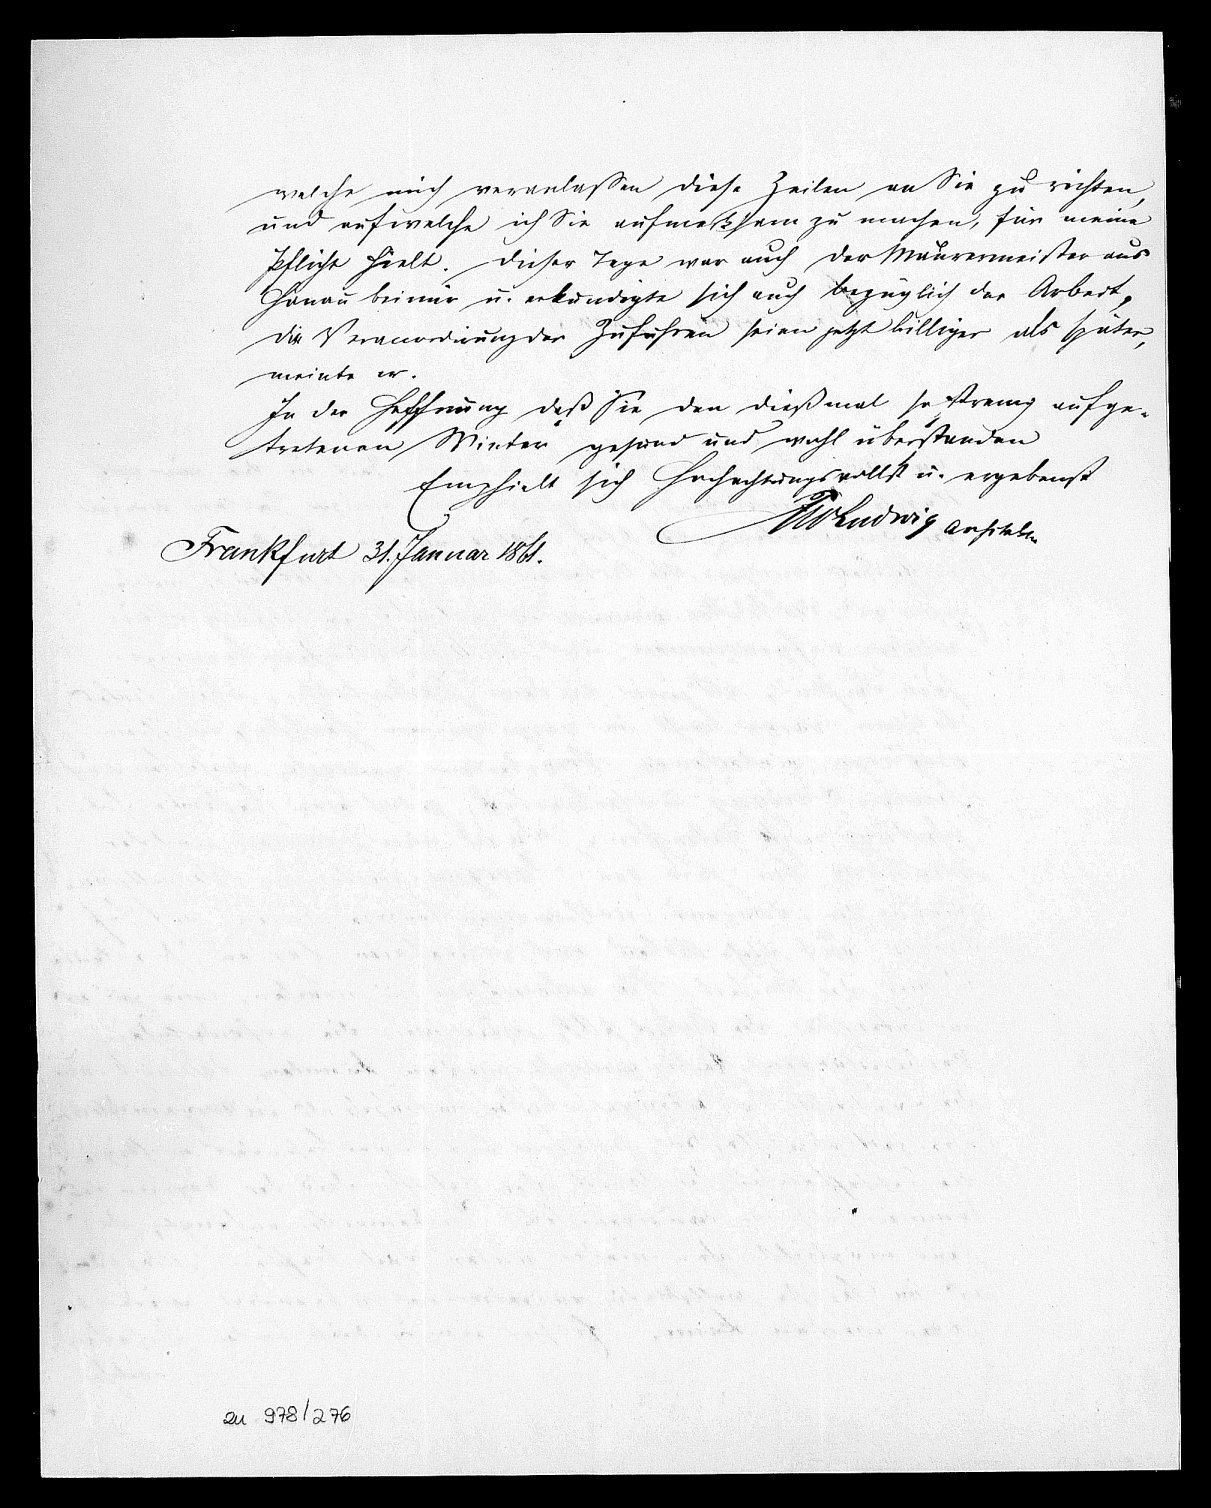 welche mich veranlassen diese Zeilen an Sie zu richten,
und auf welche ich Sie aufmerksam zu machen, für meine
Pflicht hielt. Dieser Tage war auch der Maurermeister aus
Hanau bei mir u. erkundigte sich auch bezüglich der Arbeit,
die Verancordirung der Zufuhren seien jetzt billiger als später,
meinte er.
In der Hoffnung daß Sie den dießmal so streng aufge-
tretenen Winter gesund und wohl überstanden
Empfielt sich hochachtungsvollst u. ergebenst
Ludwig Architekt
Frankfurt 31. Januar 1861.
zu 978/276